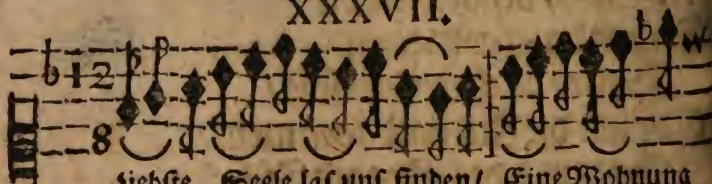 XXXVII.
12
8
Liebste Seele las uns finden/ Eine Wohnung